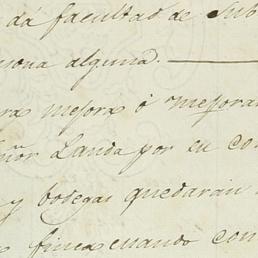 dá facultad de sub
sona alguna.
ra mejora ó mejora
ñor Landa por su co
y bodegas quedarán
finca cuando con